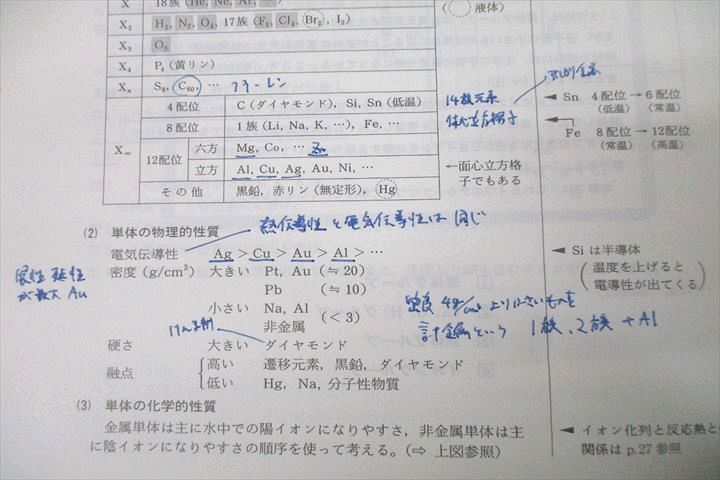 X 18族 (He, Ne, Ar,
X₂ H₂, N₂, O₂, 17族 (F₂, Cl₂, Br₂, I₂)
液体
X₃ O₃
X₄ P₄ (黄リン)
Xₙ S₈, C₆₀, … フラーレン
X∞
4配位 C (ダイヤモンド), Si, Sn (低温)
14族元素
◀ Sn 4配位 → 6配位
(低温) (常温)
8配位 1族 (Li, Na, K, …), Fe, …
体心立方格子
Fe 8配位 → 12配位
(常温) (高温)
12配位
六方 Mg, Co, … Zn
立方 Al, Cu, Ag, Au, Ni, …
←面心立方格
子でもある
その他 黒鉛, 赤リン (無定形), Hg
(2) 単体の物理的性質
熱伝導性と電気伝導性は同じ
電気伝導性 Ag > Cu > Au > Al > …
◀ Siは半導体
(温度を上げると
電導性が出てくる)
展性 延性
が最大 Au
密度 (g/cm³) 大きい Pt, Au (≒ 20)
Pb (≒ 10)
小さい Na, Al
非金属
(< 3)
より小さいものを
という 1族、2族 + Al
硬さ 大きい ダイヤモンド
融点
高い 遷移元素, 黒鉛, ダイヤモンド
低い Hg, Na, 分子性物質
(3) 単体の化学的性質
金属単体は主に水中での陽イオンになりやすさ, 非金属単体は主
に陰イオンになりやすさの順序を使って考える。(⇨ 上図参照)
◀ イオン化列と反応熱と
関係は p.27 参照